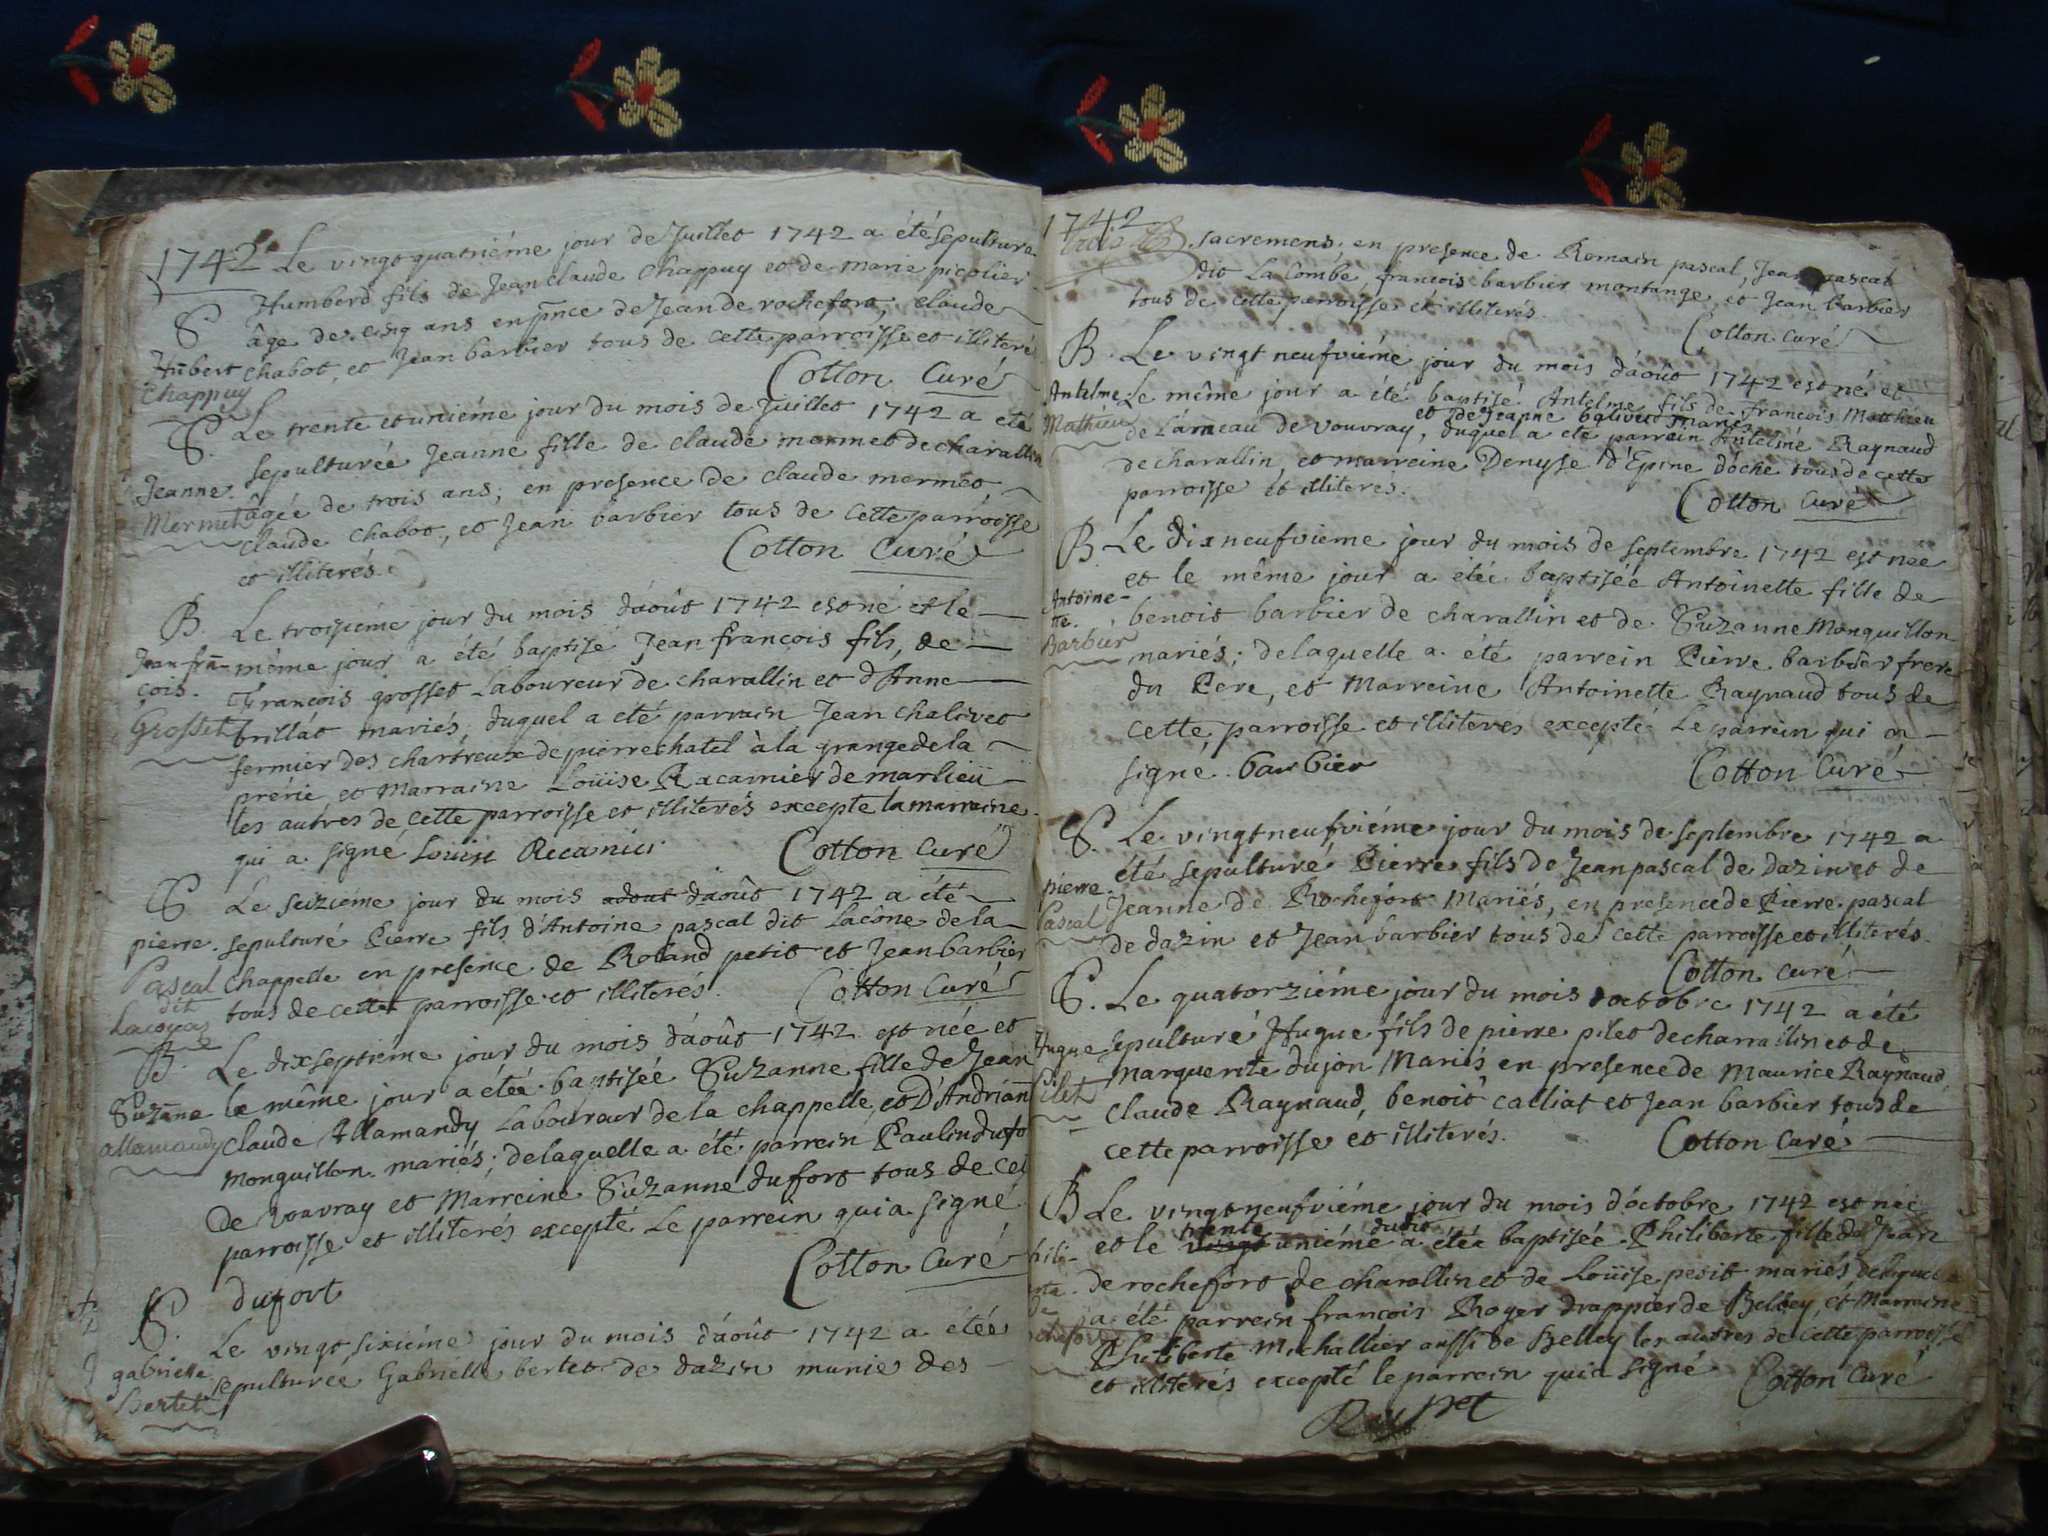 1742 Le vingt quatriéme jour de Juillet 1742 a été sepulturé
Humberd fils de Jean claude Chappuy et de marie picolier
S âge de cinq ans en pñce de Jean de rochefort, claude
Hũbert chabot, et Jean barbier tous de cette parroisse et illiterés
Chappuy
Cotton Curé
S. Le trente et uniéme jour du mois de Juillet 1742 a été
sepulturée Jeanne fille de claude mermet de charallin
Jeanne âgée de trois ans, en presence de claude mermet
Mermet claude chabot, et Jean barbier tous de cette parroisse
et illiterés.
Cotton Curé
B. Le troisiéme jour du mois d'août 1742 est né et le
Jean frã- même jour a été baptisé Jean françois fils, de
çois. François grosset Laboureur de charallin et d'Anne
Grosset brillat mariés, duquel a eté parrain Jean chalivet
fermier des chartreux de pierrechatel à la grange de la
prérie et Marraine Loüise Racamier de marlieü
les autres de cette parroisse et illiterés excepte la marraine
qui a signé Loüise Recamier
Cotton Curé
S Le seiziéme jour du mois adout d'août 1742 a été
pierre. sepulturé Pierre fils d'Antoine pascal dit Lacône de la
Pascal chappelle en presence de Roland petit et Jean barbier
dit
tous de cette parroisse et illiterés.
Cotton Curé
B. Le dix septieme jour du mois d'août 1742 est née et
Suzãne le même jour a étée baptisée Suzanne fille de Jean
allamandy claude Allamandy Laboureur de la chappelle, et D'Andrian
Monguillon mariés; de laquelle a été parrein Paulin dufo
de vouvray et Marreine Suzanne dufort tous de cet
parroisse et illiterés excepté Le parrein qui a signé
Cotton Curé
dufort
S. Le vingt sixiéme jour du mois d'août 1742 a étée
gabrielle sepulturee Gabrielle bertet de dazin munie des
Bertet
1742
sacremens, en presence de Romain pascal, Jean pascal
dit La Combe, francois barbier montange, et Jean barbier
tous de cette parroisse et illiterés.
Cotton curé
B. Le vingt neufviéme jour du mois d'août 1742 est né et
Antelme Le même jour a été baptisé Antelme fils de françois Matthieu
et de Jeanne mariés
Mathieu de L'ameau de vouvray, duquel a eté parrein Antelme Raynaud
de charallin, et marreine Denyse d'Epine doche tous de cette
parroisse et illiteres.
Cotton curé
B. Le dix neufvieme jour du mois de septembre 1742 est nee
et le même jour a etée baptisée Antoinette fille de
Antoine-
tte. benoit barbier de charallin et de Suzanne Monguillon
Barbier mariés; de laquelle a été parrein Pierre barbier frere
du Pere, et Marreine Antoinette Raynaud tous de
cette parroisse et illiteres excepté Le parrein qui a
signé. barbier
Cotton Curé
S. Le vingt neufviéme jour du mois de septembre 1742 a
été sepulturé Pierre fils de Jean pascal de dazin et de
pierre. Jeanne de Rochefort Mariés, en presence de Pierre pascal
Pascal de dazin et Jean barbier tous de cette parroisse et illiterés.
Cotton curé
S. Le quatorziéme jour du mois octobre 1742 a été
Hugue sepulturé Hugue fils de pierre pilet de charrailin et de
Pilet Marguerite dujon Mariés en presence de Maurice Raynaud,
claude Raynaud, benoit calliat et Jean barbier tous de
cette parroisse et illiterés.
Cotton Curé
B Le vingt neufviéme jour du mois d'octobre 1742 est née
trente dudit
et le vingt uniéme a étée baptisée Philiberte fille de Jean
de rochefort de charallin et de Loüise petit mariés
a été parrein francois Royer drappier de Belley, et Marraine
Philiberte Michallier aussi de Belley les autres de cette parroisse
et illiterés excepté le parrein qui a signé
Cotton Curé